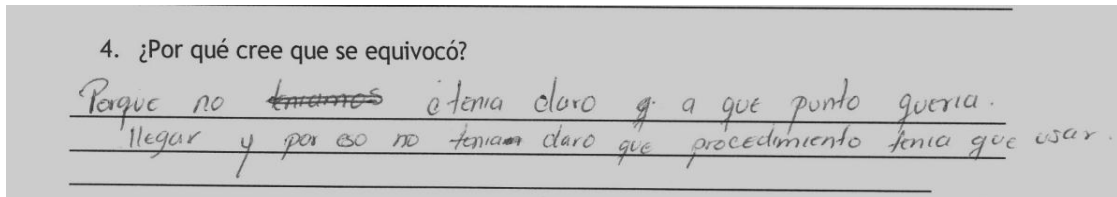 4. ¿Por qué cree que se equivocó?
Porque no teniamos tenia claro a que punto queria.
llegar y por eso no tenia claro que procedimiento tenia que usar.